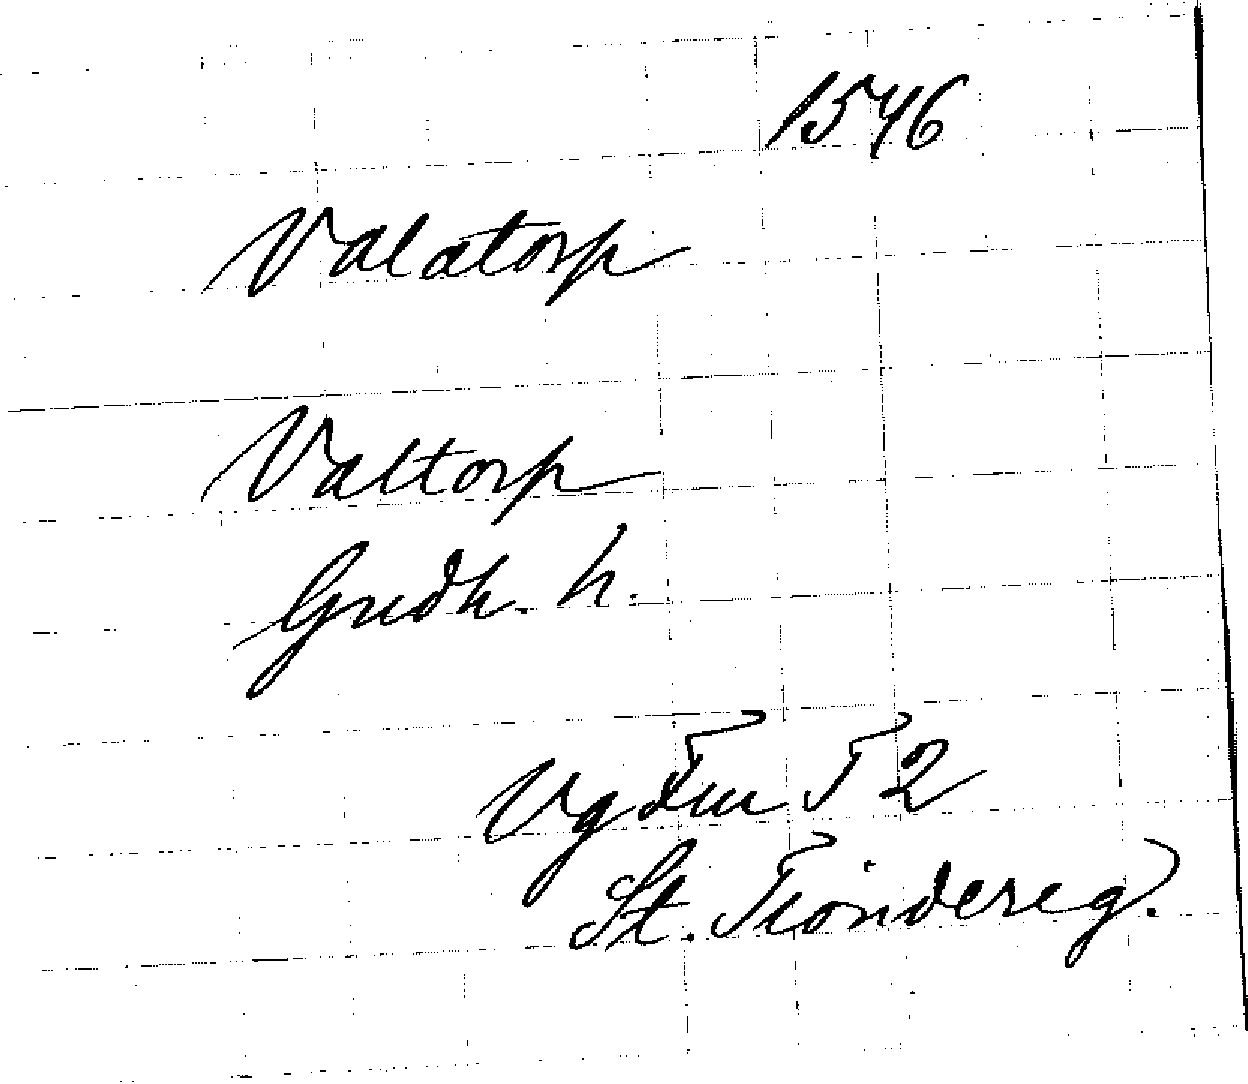 1546
Valatorp
Valtorp
Gudh. h.
Vg Fm T 2
St. Tiondereg.